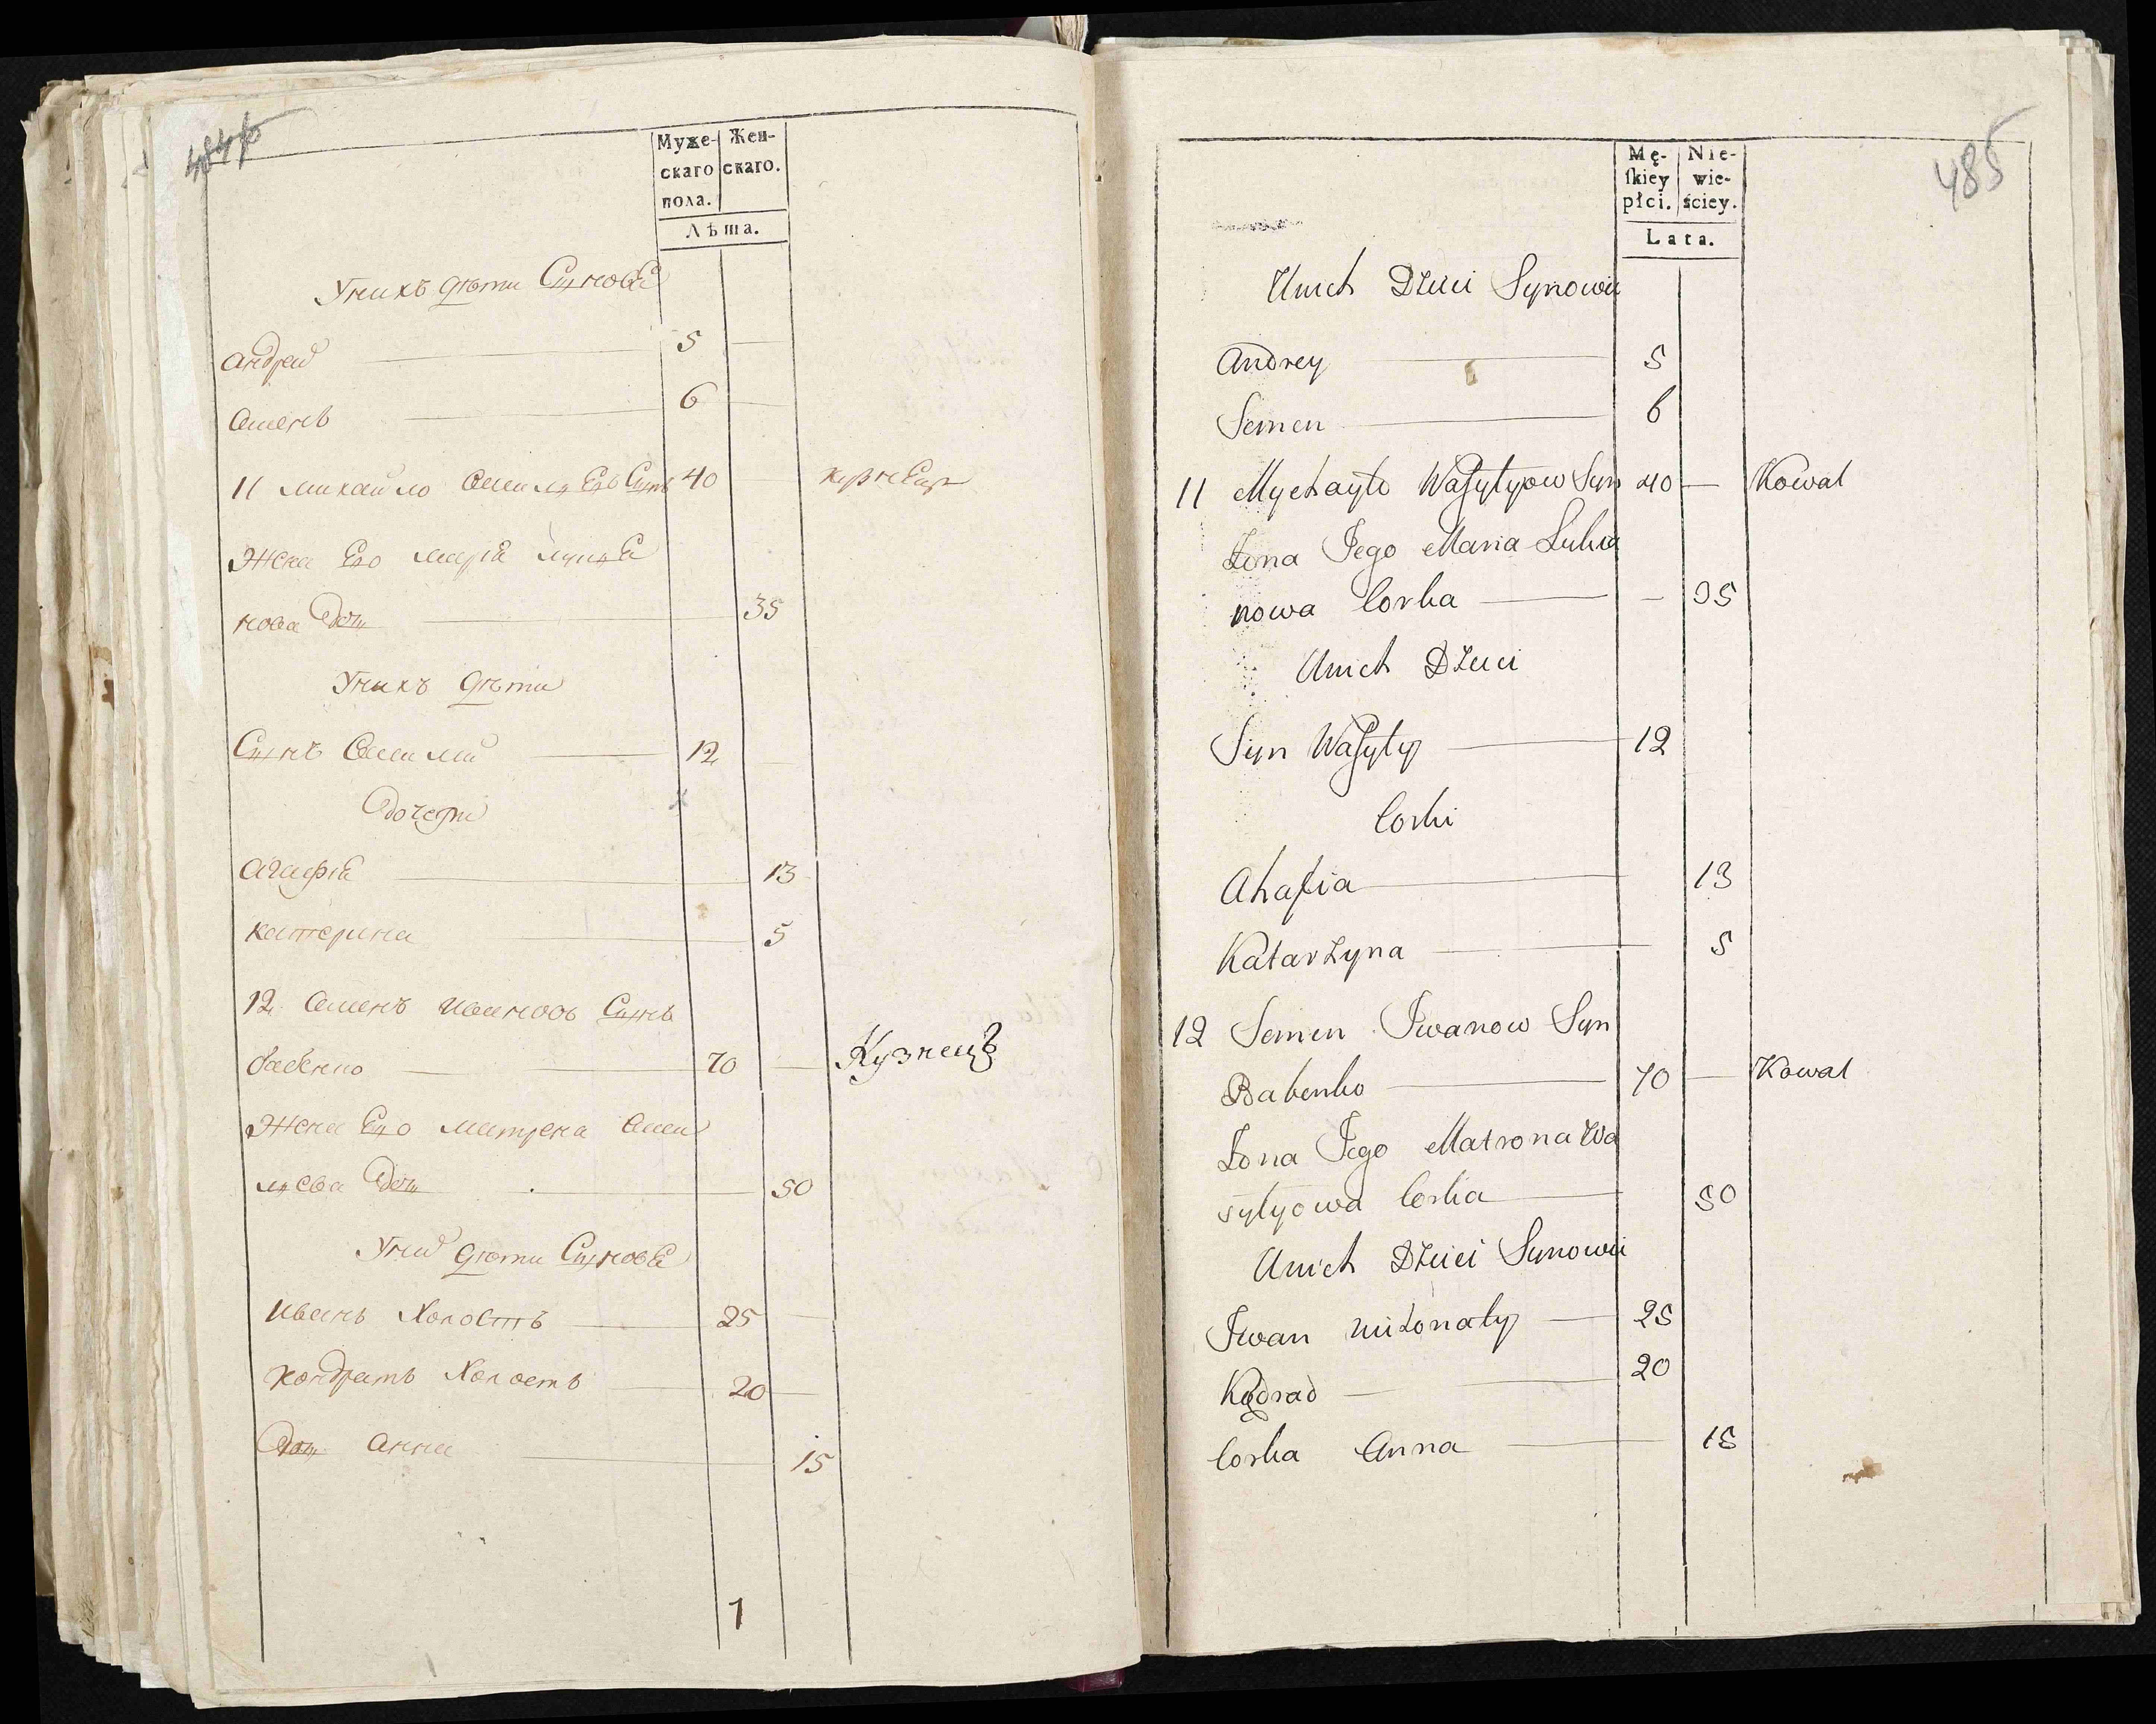 Муже-
скаго
пола.
Жен-
скаго.
Лѣта.
Унихъ дѣти Синовя
Андрей 5
Семенъ 6
11 михайло 40
Жена Его марія Лукя
нова Доч 35
Унихъ дѣти
Синъ 12
Дочери
Агафія 13
катерина 5
12 Семенъ ивановъ Синъ
бабенко 70 Кузнецъ
Жена Его матрена Васи
лиева Доч 50
Уних дѣти Синовя
иванъ Холостъ 25
кондратъ Холостъ 20
Доч Анна 15
1
485
Mę-
ſkiey
płci.
Nie-
wie-
ściey.
Lata.
Unich Dzieci Synowie
Andrey 5
Semen 6
11 Mychayło Waſylyow Syn 40 Kowal
Żona Jego Maria Lukia
nowa Corka 35
Unich Dzieci
Syn Waſyly 12
Corki
Ahafia 13
Katarzyna 5
12 Semen Iwanow Syn
Babenko 70 Kowal
Żona Jego Matrona Wa
sylyowa Corka 50
Unich Dzieci Synowie
Iwan niżonaty 25
Kądrad 20
Corka Anna 15